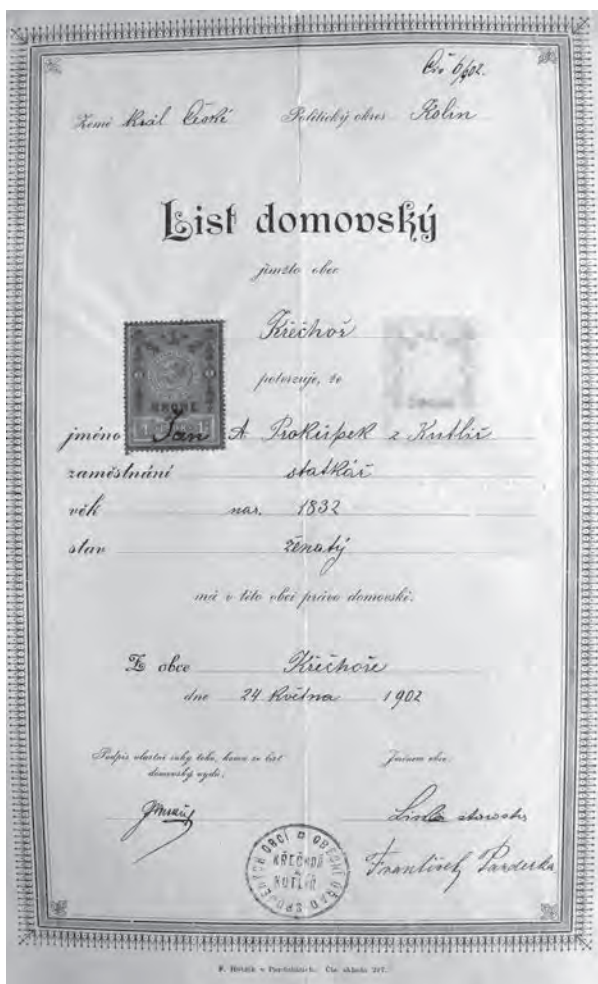 Čís 6/902.
Země Král České Politický okres Kolín
List domovský
jímžto obec
Křečhoř
potvrzuje, že
jméno Jan A Prokůpek z Kutlíř
zaměstnání statkář
věk nar. 1832
stav ženatý
má v této obci právo domovské.
Z obce Křečhoře
dne 24 Května 1902
Podpis vlastní ruky toho, komu se list
domovský vydá:
Jménem obce:
starosta
František Parderka
OBECNÍ ÚŘAD SPOJENÝCH OBCÍ
KŘEČHOŘ
KUTLÍŘ
F. Hoblík v Pardubicích. Čís. skladu 217.